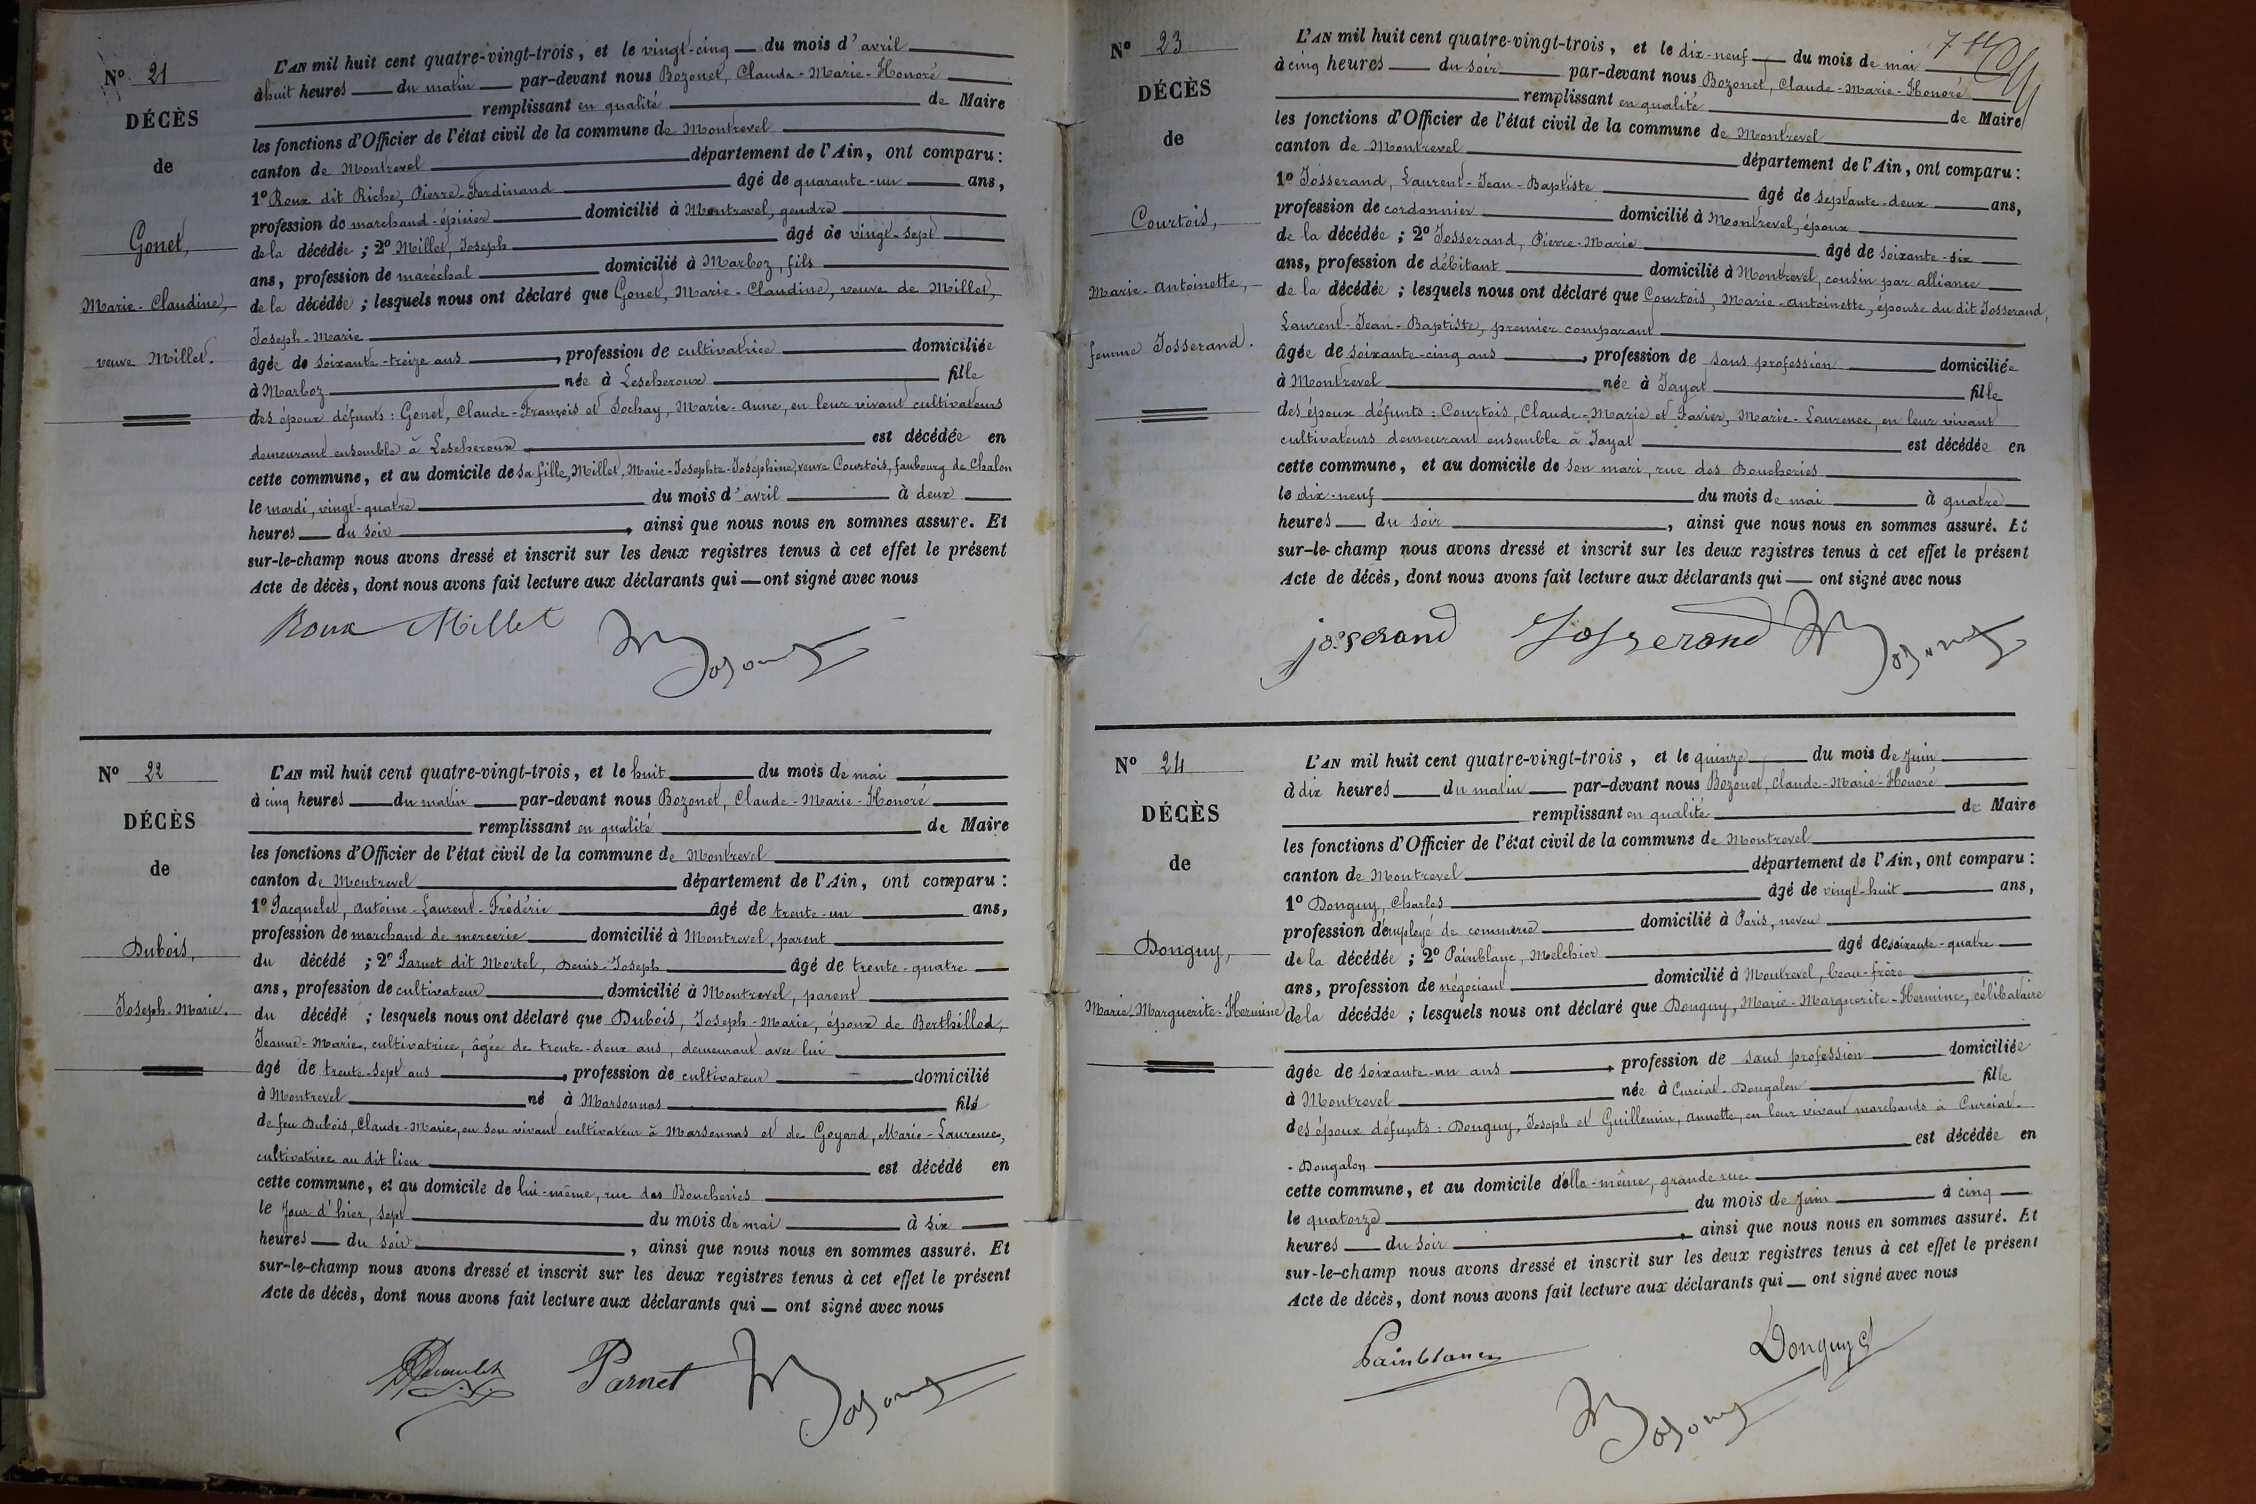 N° 21
DÉCÈS
de
Gonet,
Marie-Claudine,
veuve Millet.
L'AN mil huit cent quatre-vingt-trois, et le vingt-cinq du mois d'avril
à huit heures du matin par-devant nous Bozonet, Claude-Marie-Honoré
remplissant en qualité de Maire
les fonctions d'Officier de l'état civil de la commune de Montrevel
canton de Montrevel département de l'Ain, ont comparu :
1° Roux dit Riche, Pierre-Ferdinand âgé de quarante-un ans,
profession de marchand-épicier domicilié à Montrevel, gendre
de la décédée ; 2° Millet, Joseph âgé de vingt-sept
ans, profession de maréchal domicilié à Marboz, fils
de la décédée ; lesquels nous ont déclaré que Gonet, Marie-Claudine, veuve de Millet,
Joseph-Marie
âgée de soixante-treize ans, profession de cultivatrice domiciliée
à Marboz née à Lescheroux fille
des époux défunts : Gonet, Claude-François et Sochay, Marie-Anne, en leur vivant cultivateurs
demeurant ensemble à Lescheroux est décédée en
cette commune, et au domicile de sa fille, Millet, Marie-Josephte-Joséphine, veuve Courtois, faubourg de Chalon
le mardi, vingt-quatre du mois d'avril à deux
heures du soir, ainsi que nous nous en sommes assuré. Et
sur-le-champ nous avons dressé et inscrit sur les deux registres tenus à cet effet le présent
Acte de décès, dont nous avons fait lecture aux déclarants qui ont signé avec nous
Roux Millet Bozonet
N° 22
DÉCÈS
de
Dubois,
Joseph-Marie.
L'AN mil huit cent quatre-vingt-trois, et le huit du mois de mai
à cinq heures du matin par-devant nous Bozonet, Claude-Marie-Honoré
remplissant en qualité de Maire
les fonctions d'Officier de l'état civil de la commune de Montrevel
canton de Montrevel département de l'Ain, ont comparu :
1° Jacquelet, Antoine-Laurent-Frédéric âgé de trente-un ans,
profession de marchand de mercerie domicilié à Montrevel, parent
du décédé ; 2° Parnet dit Mortel, Denis-Joseph âgé de trente-quatre
ans, profession de cultivateur domicilié à Montrevel, parent
du décédé ; lesquels nous ont déclaré que Dubois, Joseph-Marie, époux de Berthillod,
Jeanne-Marie, cultivatrice, âgée de trente-deux ans, demeurant avec lui
âgé de trente-sept ans, profession de cultivateur domicilié
à Montrevel né à Marsonnas fils
de feu Dubois, Claude-Marie, en son vivant cultivateur à Marsonnas et de Goyard, Marie-Laurence,
cultivatrice au dit lieu est décédé en
cette commune, et au domicile de lui-même, rue des Boucheries
le jour d'hier, sept du mois de mai à six
heures du soir, ainsi que nous nous en sommes assuré. Et
sur-le-champ nous avons dressé et inscrit sur les deux registres tenus à cet effet le présent
Acte de décès, dont nous avons fait lecture aux déclarants qui ont signé avec nous
Parnet Bozonet
N° 23
DÉCÈS
de
Courtois,
Marie-Antoinette,
femme Josserand.
L'AN mil huit cent quatre-vingt-trois, et le dix-neuf du mois de mai
à cinq heures du soir par-devant nous Bozonet, Claude-Marie-Honoré
remplissant en qualité de Maire
les fonctions d'Officier de l'état civil de la commune de Montrevel
canton de Montrevel département de l'Ain, ont comparu :
1° Josserand, Laurent-Jean-Baptiste âgé de septante-deux ans,
profession de cordonnier domicilié à Montrevel, époux
de la décédée ; 2° Josserand, Pierre-Marie âgé de soixante-six
ans, profession de débitant domicilié à Montrevel, cousin par alliance
de la décédée ; lesquels nous ont déclaré que Courtois, Marie-Antoinette, épouse du dit Josserand,
Laurent-Jean-Baptiste, premier comparant
âgée de soixante-cinq ans, profession de sans profession domiciliée
à Montrevel née à Jayat fille
des époux défunts : Courtois, Claude-Marie et Favier, Marie-Laurence, en leur vivant
cultivateurs demeurant ensemble à Jayat est décédée en
cette commune, et au domicile de son mari, rue des Boucheries
le dix-neuf du mois de mai à quatre
heures du soir, ainsi que nous nous en sommes assuré. Et
sur-le-champ nous avons dressé et inscrit sur les deux registres tenus à cet effet le présent
Acte de décès, dont nous avons fait lecture aux déclarants qui ont signé avec nous
josserand Josserand Bozonet
N° 24
DÉCÈS
de
Donguy,
Marie-Marguerite-Hermine
L'AN mil huit cent quatre-vingt-trois, et le quinze du mois de juin
à dix heures du matin par-devant nous Bozonet, Claude-Marie-Honoré
remplissant en qualité de Maire
les fonctions d'Officier de l'état civil de la commune de Montrevel
canton de Montrevel département de l'Ain, ont comparu :
1° Donguy, Charles âgé de vingt-huit ans,
profession d'employé de commerce domicilié à Paris, neveu
de la décédée ; 2° Painblanc, Melchior âgé de soixante-quatre
ans, profession de négociant domicilié à Montrevel, beau-frère
de la décédée ; lesquels nous ont déclaré que Donguy, Marie-Marguerite-Hermine, célibataire
âgée de soixante-un ans, profession de sans profession domiciliée
à Montrevel née à Curciat-Dongalon fille
des époux défunts : Donguy, Joseph et Guillemin, Annette, en leur vivant marchands à Curciat-
-Dongalon est décédée en
cette commune, et au domicile d'elle-même, grande rue
le quatorze du mois de juin à cinq
heures du soir, ainsi que nous nous en sommes assuré. Et
sur-le-champ nous avons dressé et inscrit sur les deux registres tenus à cet effet le présent
Acte de décès, dont nous avons fait lecture aux déclarants qui ont signé avec nous
Painblanc Donguy C
Bozonet